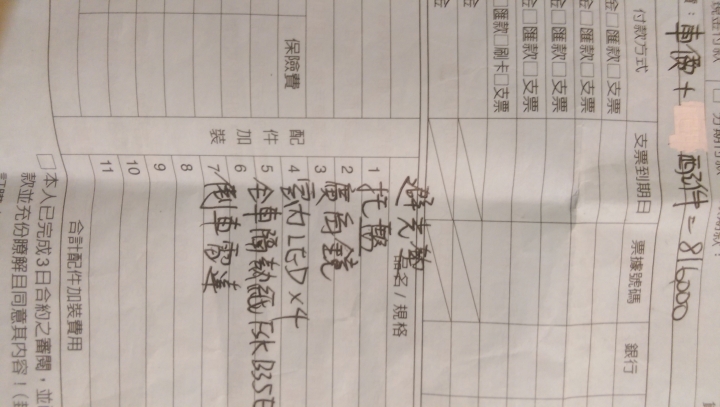 費：車價+ 配件=816000
付款方式 支票到期日 票據號碼 銀行
金□匯款□支票
金□匯款□支票
金□匯款□支票
金□匯款□支票
匯款□刷卡□支票
金
金
避光墊
品名/規格
1 托盤
2 廣角鏡
3
4 室內LED×4
5 全車隔熱紙 FSK B35E
6
7 倒車雷達
8
9
10
11
保險費
配件加裝
合計配件加裝費用
□本人已完成3日合約之審閱，並
款並充份瞭解且同意其內容！